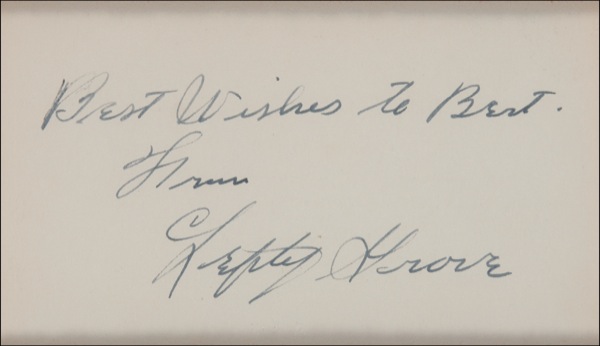 Best Wishes to Bert.
From
Lefty Grove